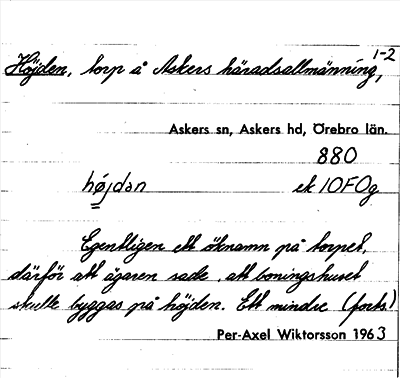 1-2
Höjden, torp å Askers häradsallmänning,
Askers sn, Askers hd, Örebro län.
880
højdən ek 10F0g
Egentligen ett öknamn på torpet,
därför att ägaren sade, att boningshuset
skulle byggas på höjden. Ett mindre (forts.)
Per-Axel Wiktorsson 1963